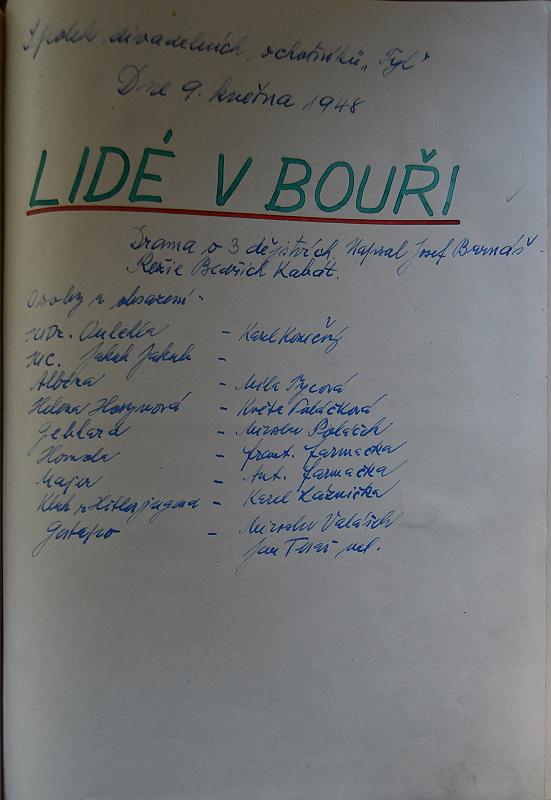 Spolek divadelních ochotníků „Tyl“
Dne 9. května 1948
LIDÉ V BOUŘI
Drama o 3 dějstvích. Napsal Josef Barnáš
Režie Bedřich Kabát.
Osoby a obsazení -
MDr. Oulehla - Karel Konečný
MC. Jakub Jakub -
Albína - Míla Tycová
Helena Hosynová - Květa Valášková
Gebhard - Miroslav Polách
Homola - Frant. Jarmačka
Majer - Ant. Jarmačka
Kluk z Hitlerjugend - Karel Lážnička
Gestapo - Miroslav Valášek
Jan Tesař ml.